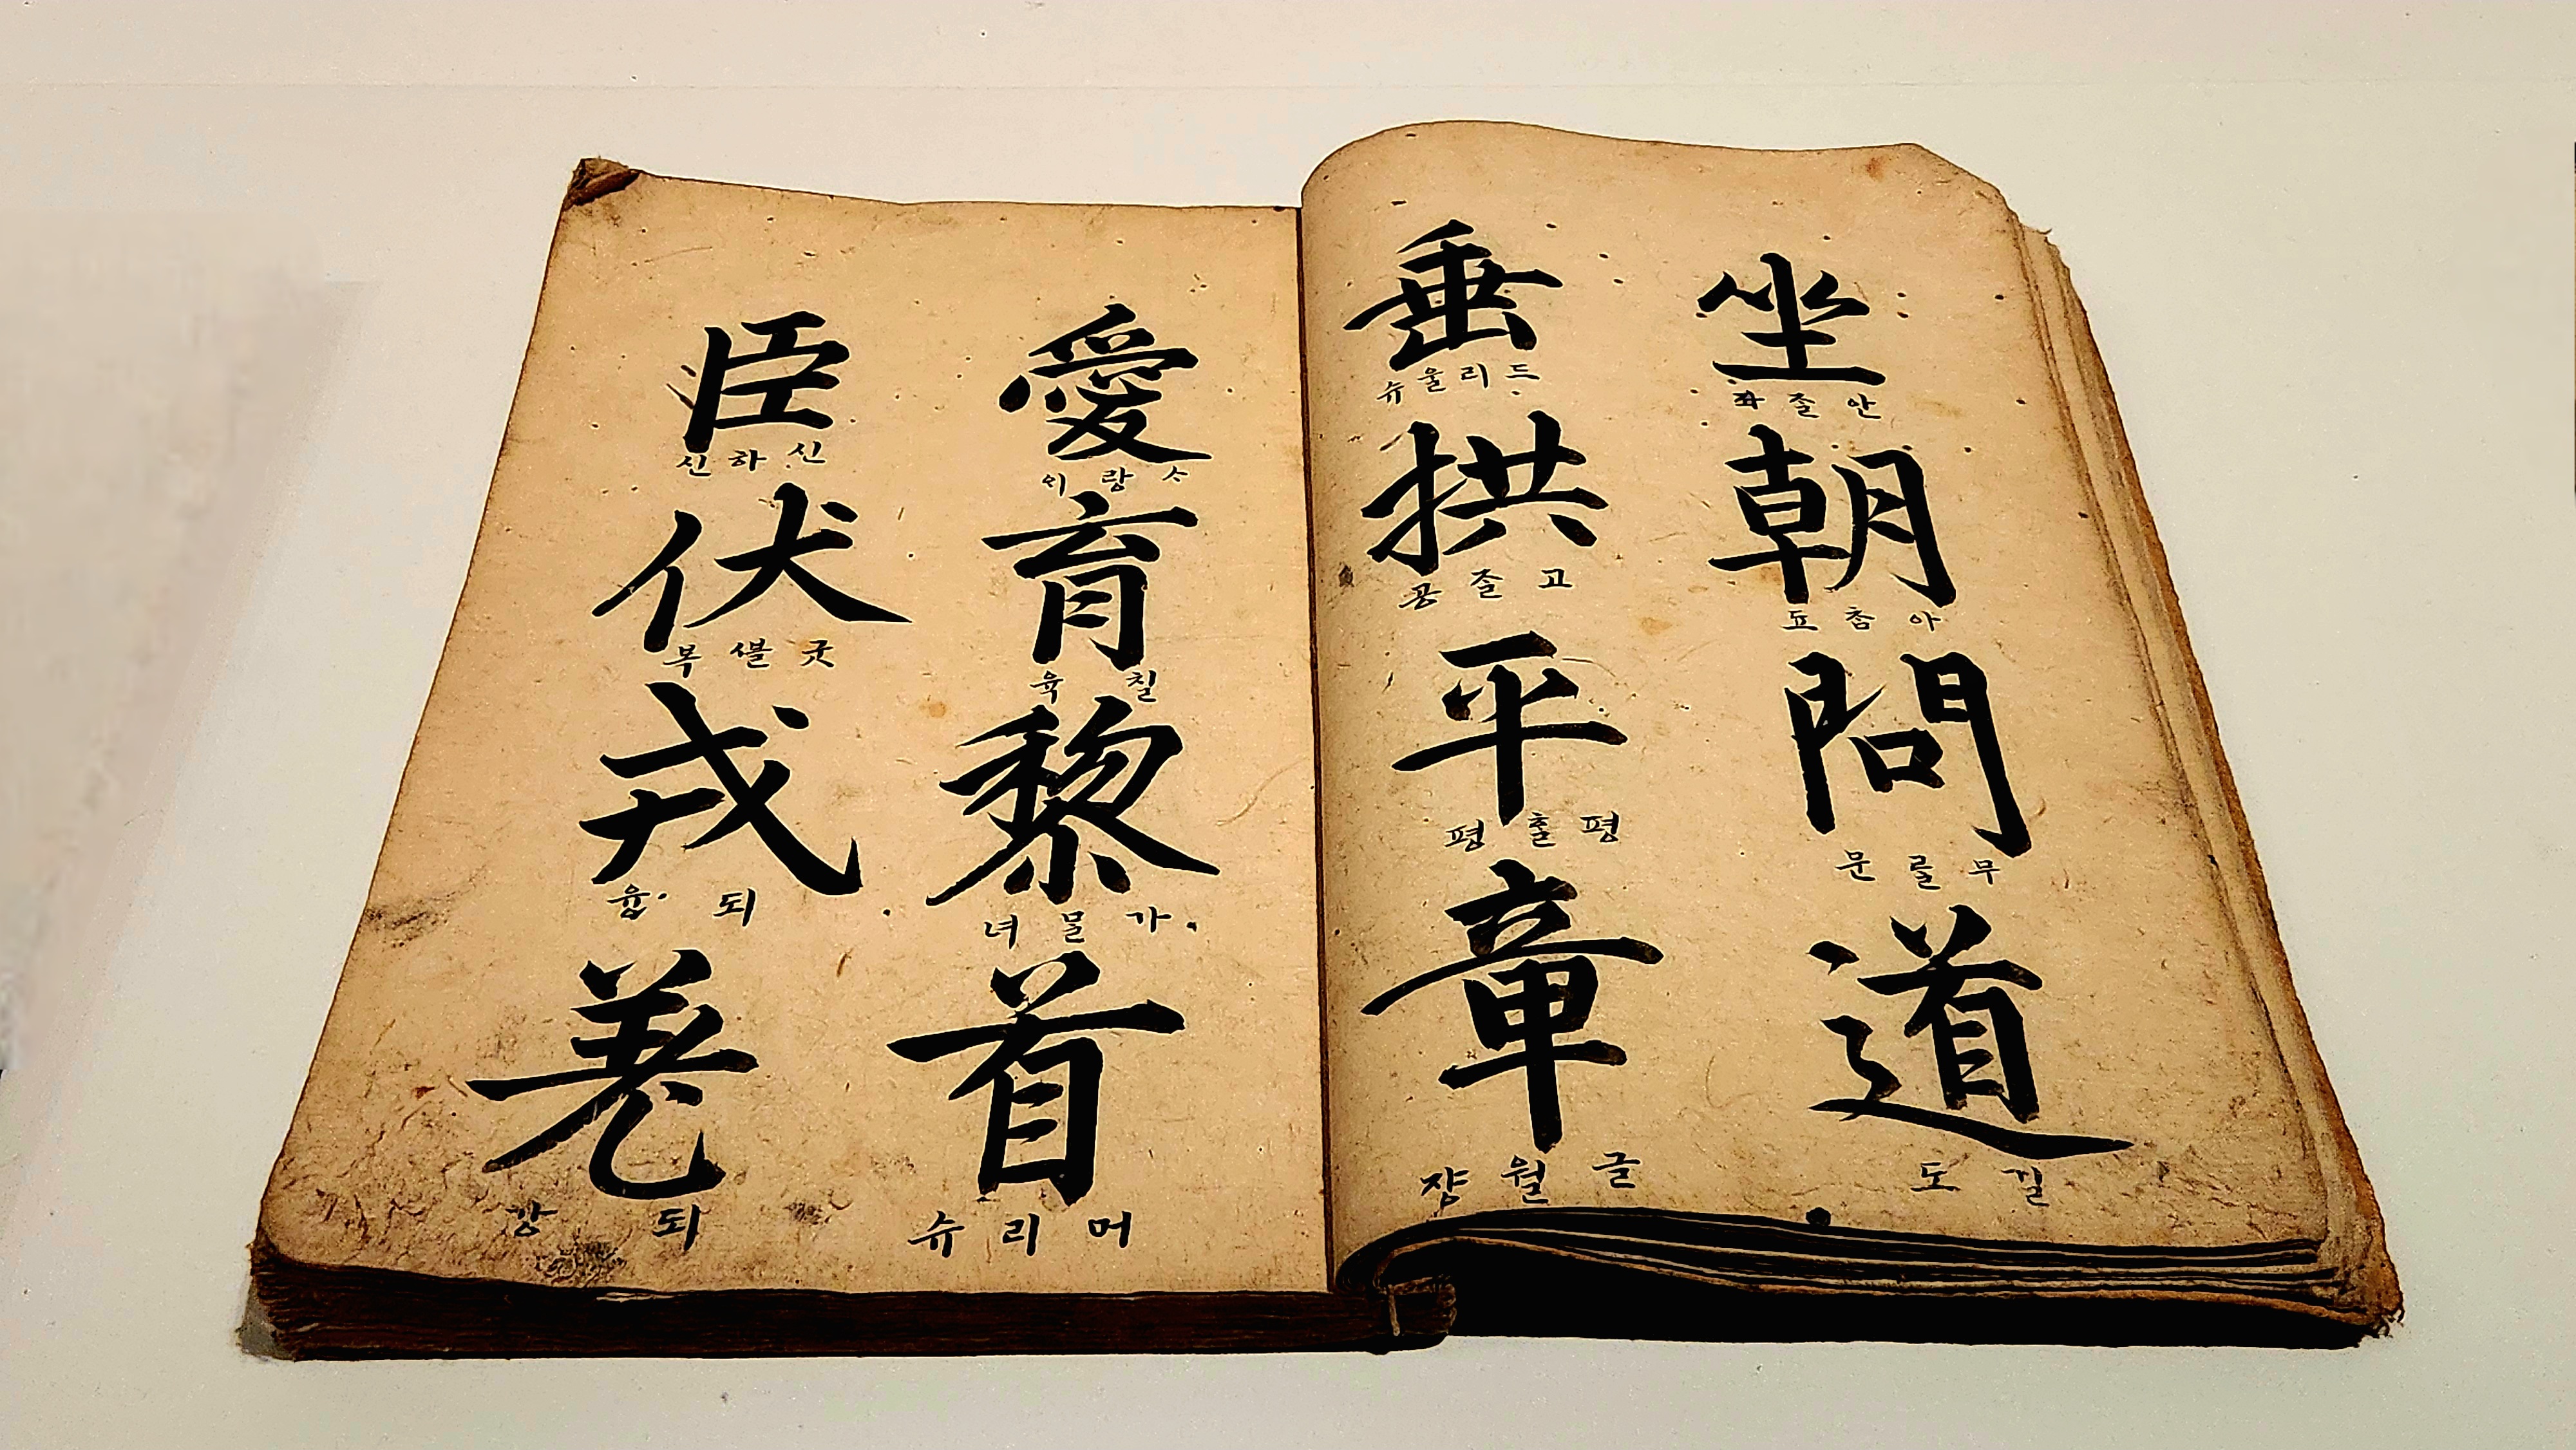 坐
안즐좌
朝
아참됴
問
무를문
道
길도
垂
드리울슈
拱
고즐공
平
평 평
章
글월쟝
愛
랑
育
칠육
黎
가믈녀
首
머리슈
臣
신하신
伏
굿 복
戎
되융
羌
되강